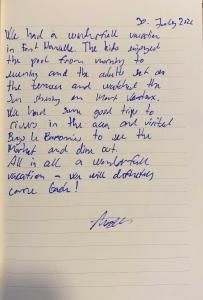 30. July 2022
We had a wonderfull vacation
in Font Marcelle. The kids enjoyed
the pool from morning to
evening and the adults sat on
the terrace and watched the
sun shining on Mont Ventoux.
We had some good trips to
rivers in the area and visited
Buis Le Baronnies to see the
Market and dine out.
All in all a wonderfull
vacation – we will definitely
come back!